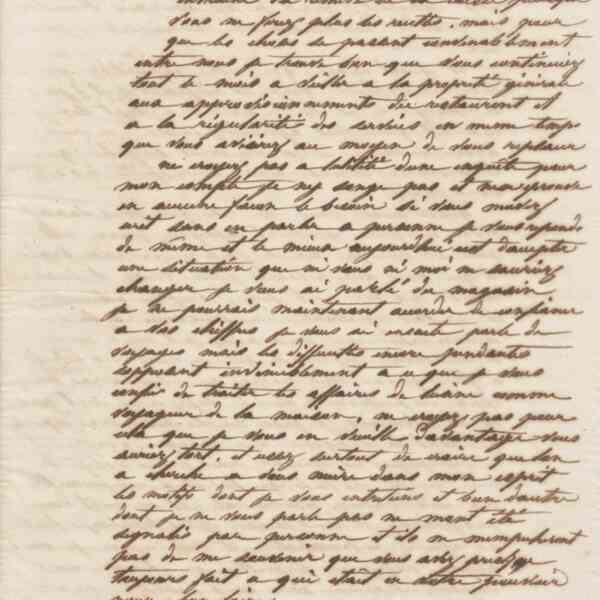 vous ne ferez plus les recettes. mais pour
que les choses se passent convenablement
entre nous je trouve bon que vous continuiez
tout le mois a veiller a la propreté générale
aux approvisionnements du restaurant et
a la régularité des services en meme temps
que vous aviserez au moyen de vous replacer
ne croyez pas a lutilité dune enquête pour
mon compte je ny songe pas et nen eprouve
en aucune façon le besoin si vous
sans en parler a personne je vous reponds
de même et le mieux aujourdhui est daccepter
une situation que ni vous ni moi ne saurions
changer je vous ai parlé du magasin
je ne pourrais maintenant accorder de confiance
a vos chiffres je vous ai ensuite parlé de
voyages mais les difficultés encore pendantes
sopposent invinciblement a ce que je vous
confie de traiter les affaires de lusine comme
voyageur de la maison, ne croyez pas pour
cela que je vous en veuille davantage vous
auriez tort. et veuez surtout de croire que lon
a cherché a vous nuire dans mon esprit
les motifs dont je vous entretiens et bien dautre
dont je ne vous parle pas ne mont été
signalés par personne et ils ne mempecheront
pas de me souvenir que vous avez presque
toujours fait a qui était en votre pouvoir